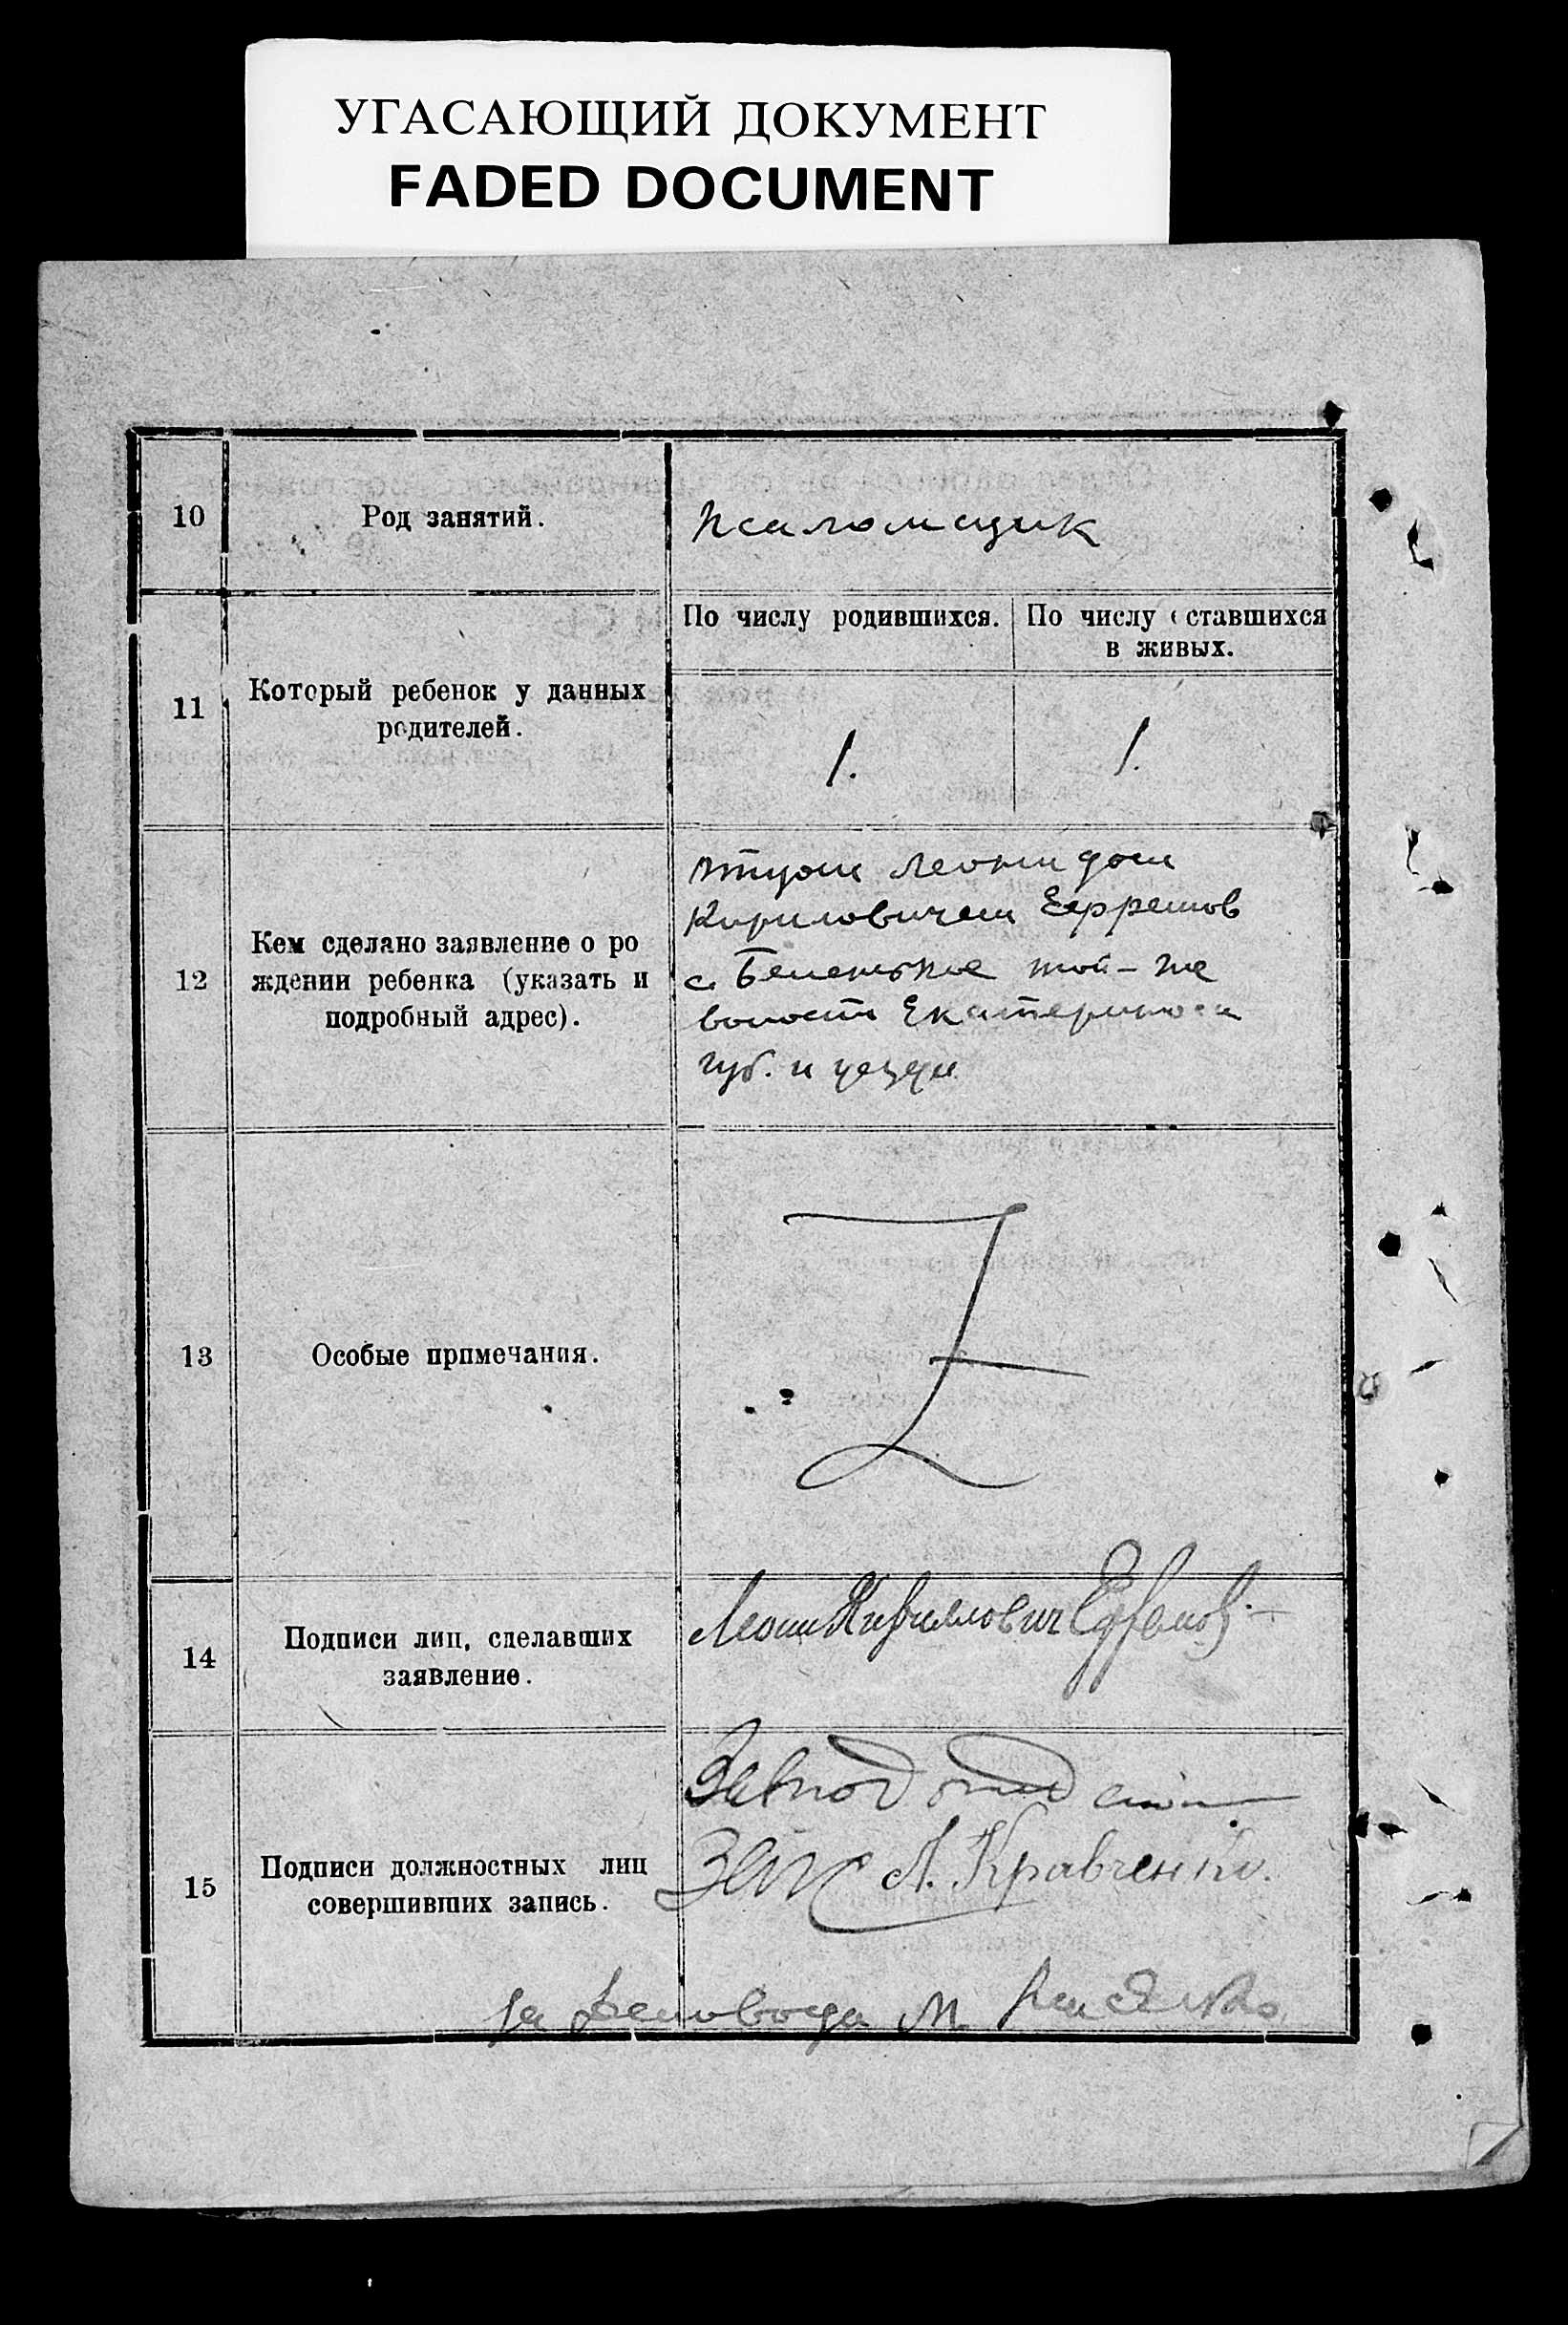 УГАСАЮЩИЙ ДОКУМЕНТ
FADED DOCUMENT
10
Род занятий.
псаломщик
11
Который ребенок у данных
родителей.
По числу родившихся.
По числу оставшихся
в живых.
1.
1.
12
Кем сделано заявление о ро
ждении ребенка (указать и
подробный адрес).
Леонидом
Кириловичем
с. Беленькое той-же
волости Екатеринос
губ. и уезда
13
Особые примечания.
Z
14
Подписи лиц, сделавших
заявление.
Кириллович
15
Подписи должностных лиц
совершивших запись.
Завпод
Загс А. Кравченко.
за Деловода М.